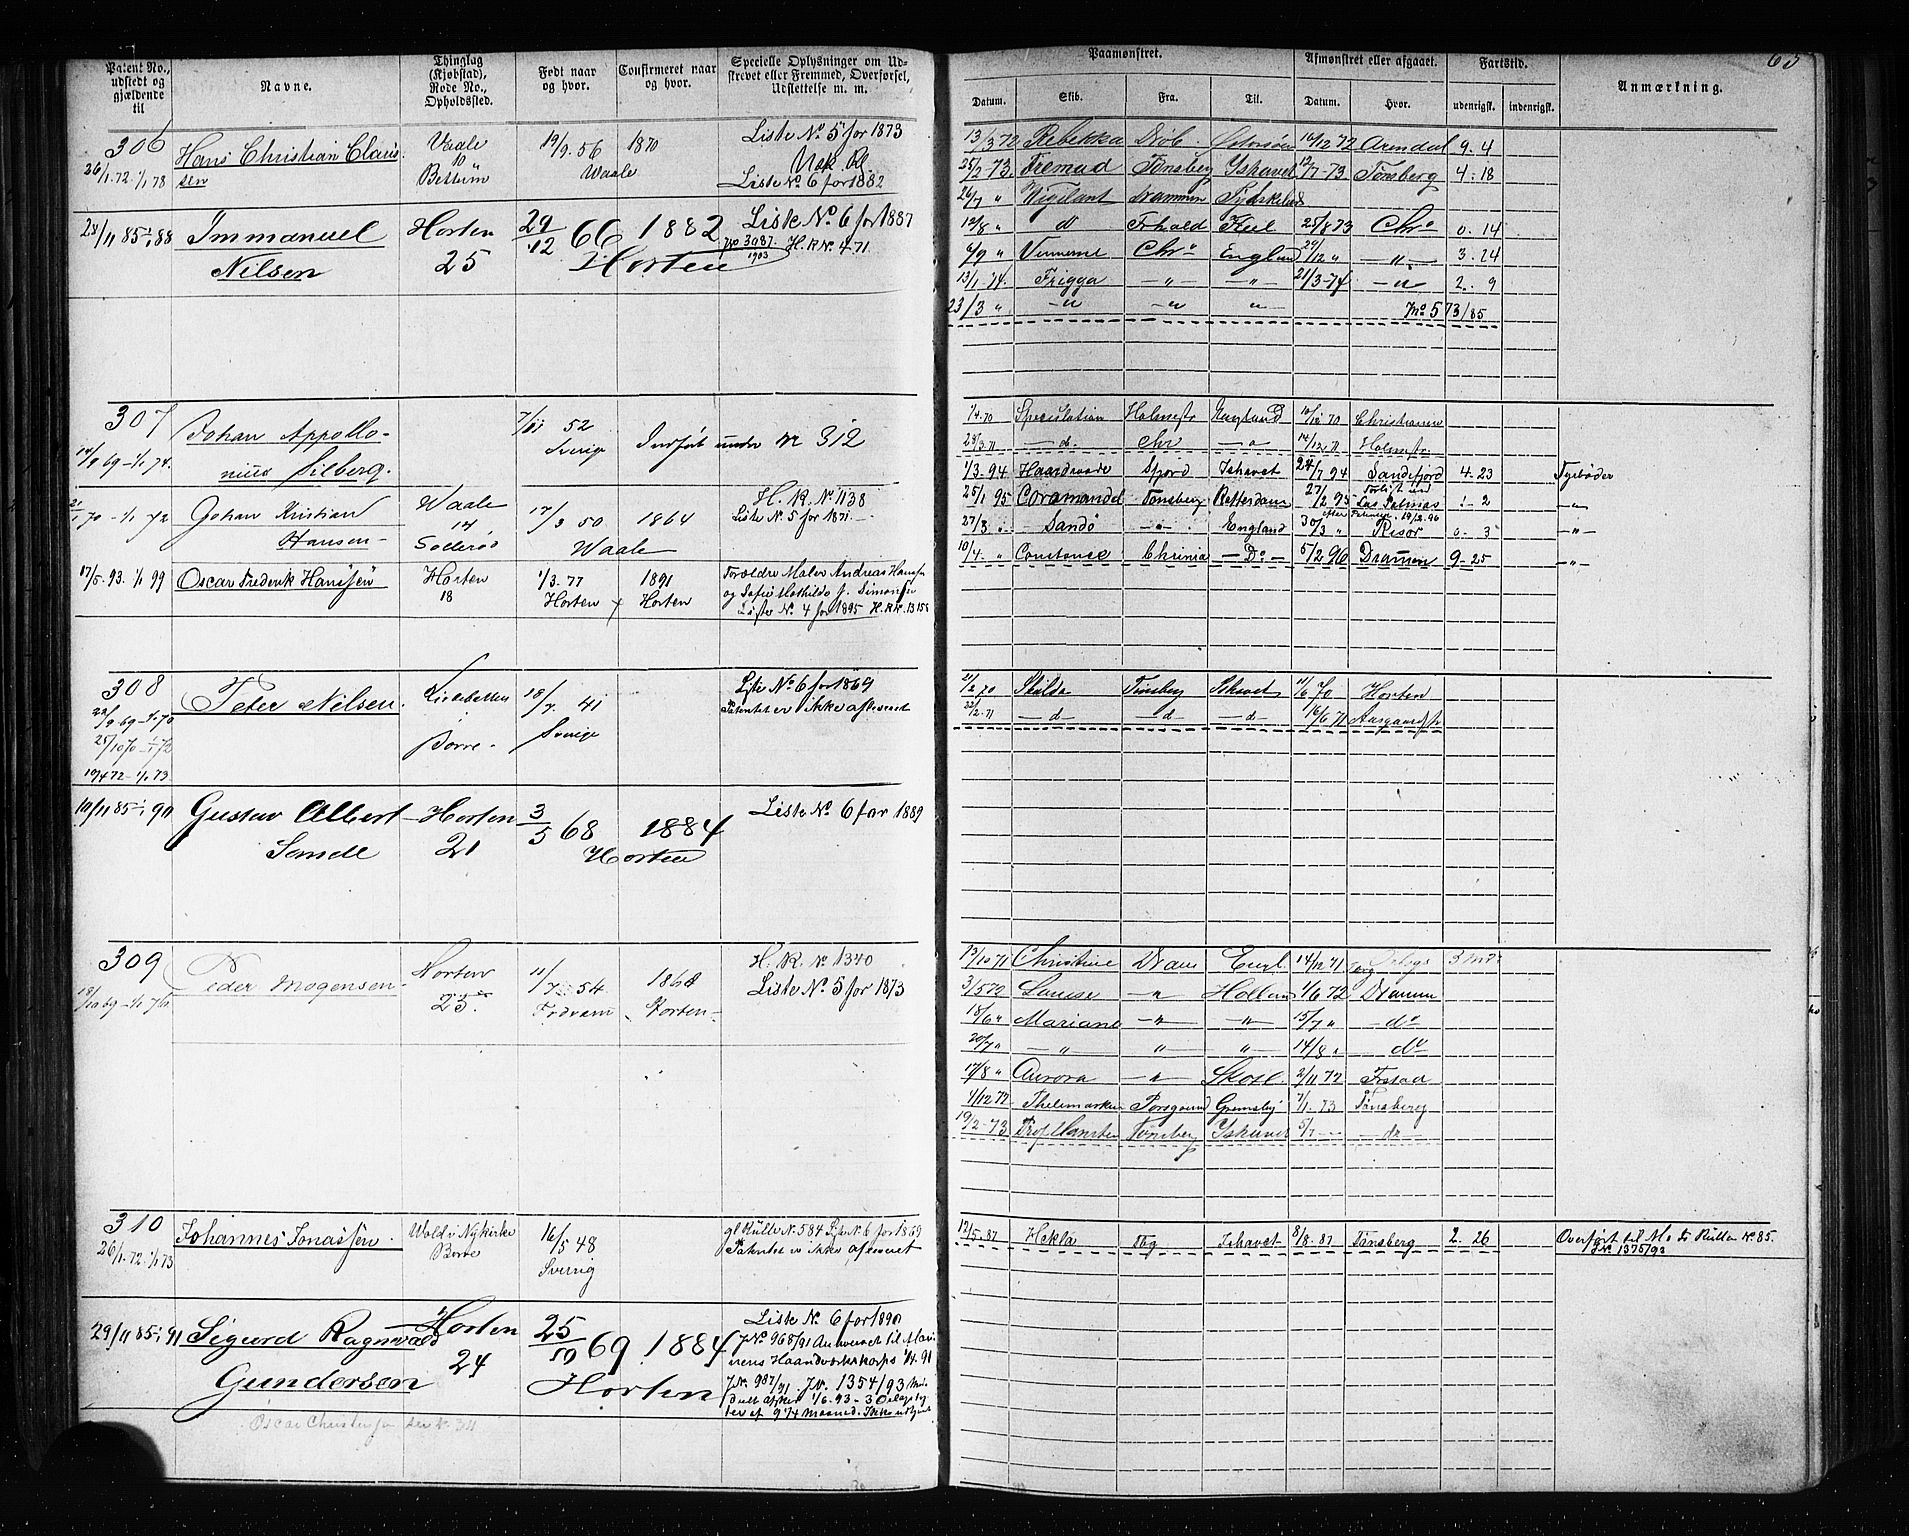 65
Patent No., udstedt og gjældende til
Navne.
Thinglag (Kjøbstad), Rode No., Opholdssted.
Født naar og hvor.
Confirmeret naar og hvor.
Specielle Oplysninger om Udskrevet eller Fremmed, Overførsel, Udslettelse m. m.
306
26/1.72-1/1 78
Hans Christian Claussen
Vaale
10
19/9. 56
Waale
1870
Liste No. 5 for 1873
Liste No 6 for 1882
28/11 85-1/1 88
Immanuel
Nilsen
Horten
25
29/12 66
1882
Horten
Liste No. 6 for 1887
No 3087/1903
H.R No. 471.
307
14/9 69-1/1 74.
Johan Appollo-
nius Silberg.
7/11 52
Sverige
Indført under No 312
2/1 70-1/1 72
Johan Kristian
Hansen-
Waale
14
17/3 50
1864
Waale
H. R. No 1138
Liste No. 5 for 1871
17/5.93. 1/1 99
Oscar Frederik Hanssen
Horten
18
1/3.77
Horten
1891
Horten
Forældre Maler Andreas Hanssen
og Sofie Mathilde f. Simonsen
Liste No. 4 for 1895 H.R.No.
308
22/9 69-1/1 70
25/10 70-1/1 72
19/4 72-1/1 73
Peter Nilsen.
Borre.
18/7. 41
Sverige
Liste No. 6 for 1869
Patentet er ikke afleveret
19/11 85-1/1 90
Gustav Albert
Sande
Horten
21
3/5 68
1884
Horten
Liste No. 6 for 1889
309
18/10 69-1/1 76
Peder Mogensen
Horten
25
11/7 54
1868
Horten
H. R. No 1340
Liste No. 5 for 1873
310
26/1.72-1/1 73
Johannes Jonassen.
Wold i Nykirke
Borre
16/5 48
Sverig
gl Rulle No. 584 Liste No. 6 for 1869
Patentet er ikke afleveret
29/11 85-1/1 91
Sigurd Ragnvald
Gundersen
Horten
24
25/10 69
1884
Horten
Liste No. 6 for 1890
J.No. 968/91 Antaget til Mari-
nens Haandværkskorps 1/4.91
J.No. 987/91. J.No. 1354/93
Oscar Christensen se No. 311
Paamønstret.
Afmønstret eller afgaaet.
Fartstid.
Anmærkning.
Datum.
Skib.
Fra.
Til.
Datum.
Hvor.
udenrigsk.
indenrigsk.
13/3 72 Rebekka Drøb. 10/12 72 Arendal 9. 4
25/2-73. Fremad Tønsberg Ishavet 12/7-73 Tønsberg 4. 18
26/7 " Vigilant Drammen Tydskeland
12/8 " d Frhald Kiel 25/8 73 Chra 0. 14
6/9 " Chra England 29/12 " —"— 3. 24
13/1-74. Frigga —"— —"— 21/3-74 —"— 2. 9
23/3 " —"— —"— " M.o 573/85
1/4.70 Speculation Holmestr England 10/12 70 Christiania
28/3.71 —d— Chr —"— 14/12.71 Holmestr.
1/3.94 Haardraade Sfjord Ishavet 24/7 94 Sandefjord 4-23 Fyrbøder
25/1 95 Coromandel Tønsberg Rotterdam 27/2 95 Forlist ved Las Palmas 1-2 —"—
27/3 " Sandø —"— England 30/3 " Risør 0. 3 —"—
10/4. " Constance Chrinia —Do— 5/2 96 Dramen 9-25 —"—
2/2 70 Skulda Tønsberg Ishavet 11/6 70 Horten
22/2.71 —d— —d— —d— 16/6 71 Aasgaardstr
23/10 71 Christine Dram Engl. 14/12 71
3/5 72 Louise —"— Holland 1/6 72 Dramm
18/6 " Mariane —"— —"— 15/7 " —do
20/7 " —"— " " 14/8 " do
17/8 " Aurora —"— Skotl. 2/11 72 Frstad
4/12 72 Thelemarken Porsgrund Grimsby 7/1.73 Tønsberg
19/2-73 Prof Hansten Tønsberg Ishavet 5/7 —do—
12/5.87 Hekla Tbg Ishavet 8/8.87 Tønsberg 2. 26 Overført til M. & Rullen No. 85.
J.No. 1375/93